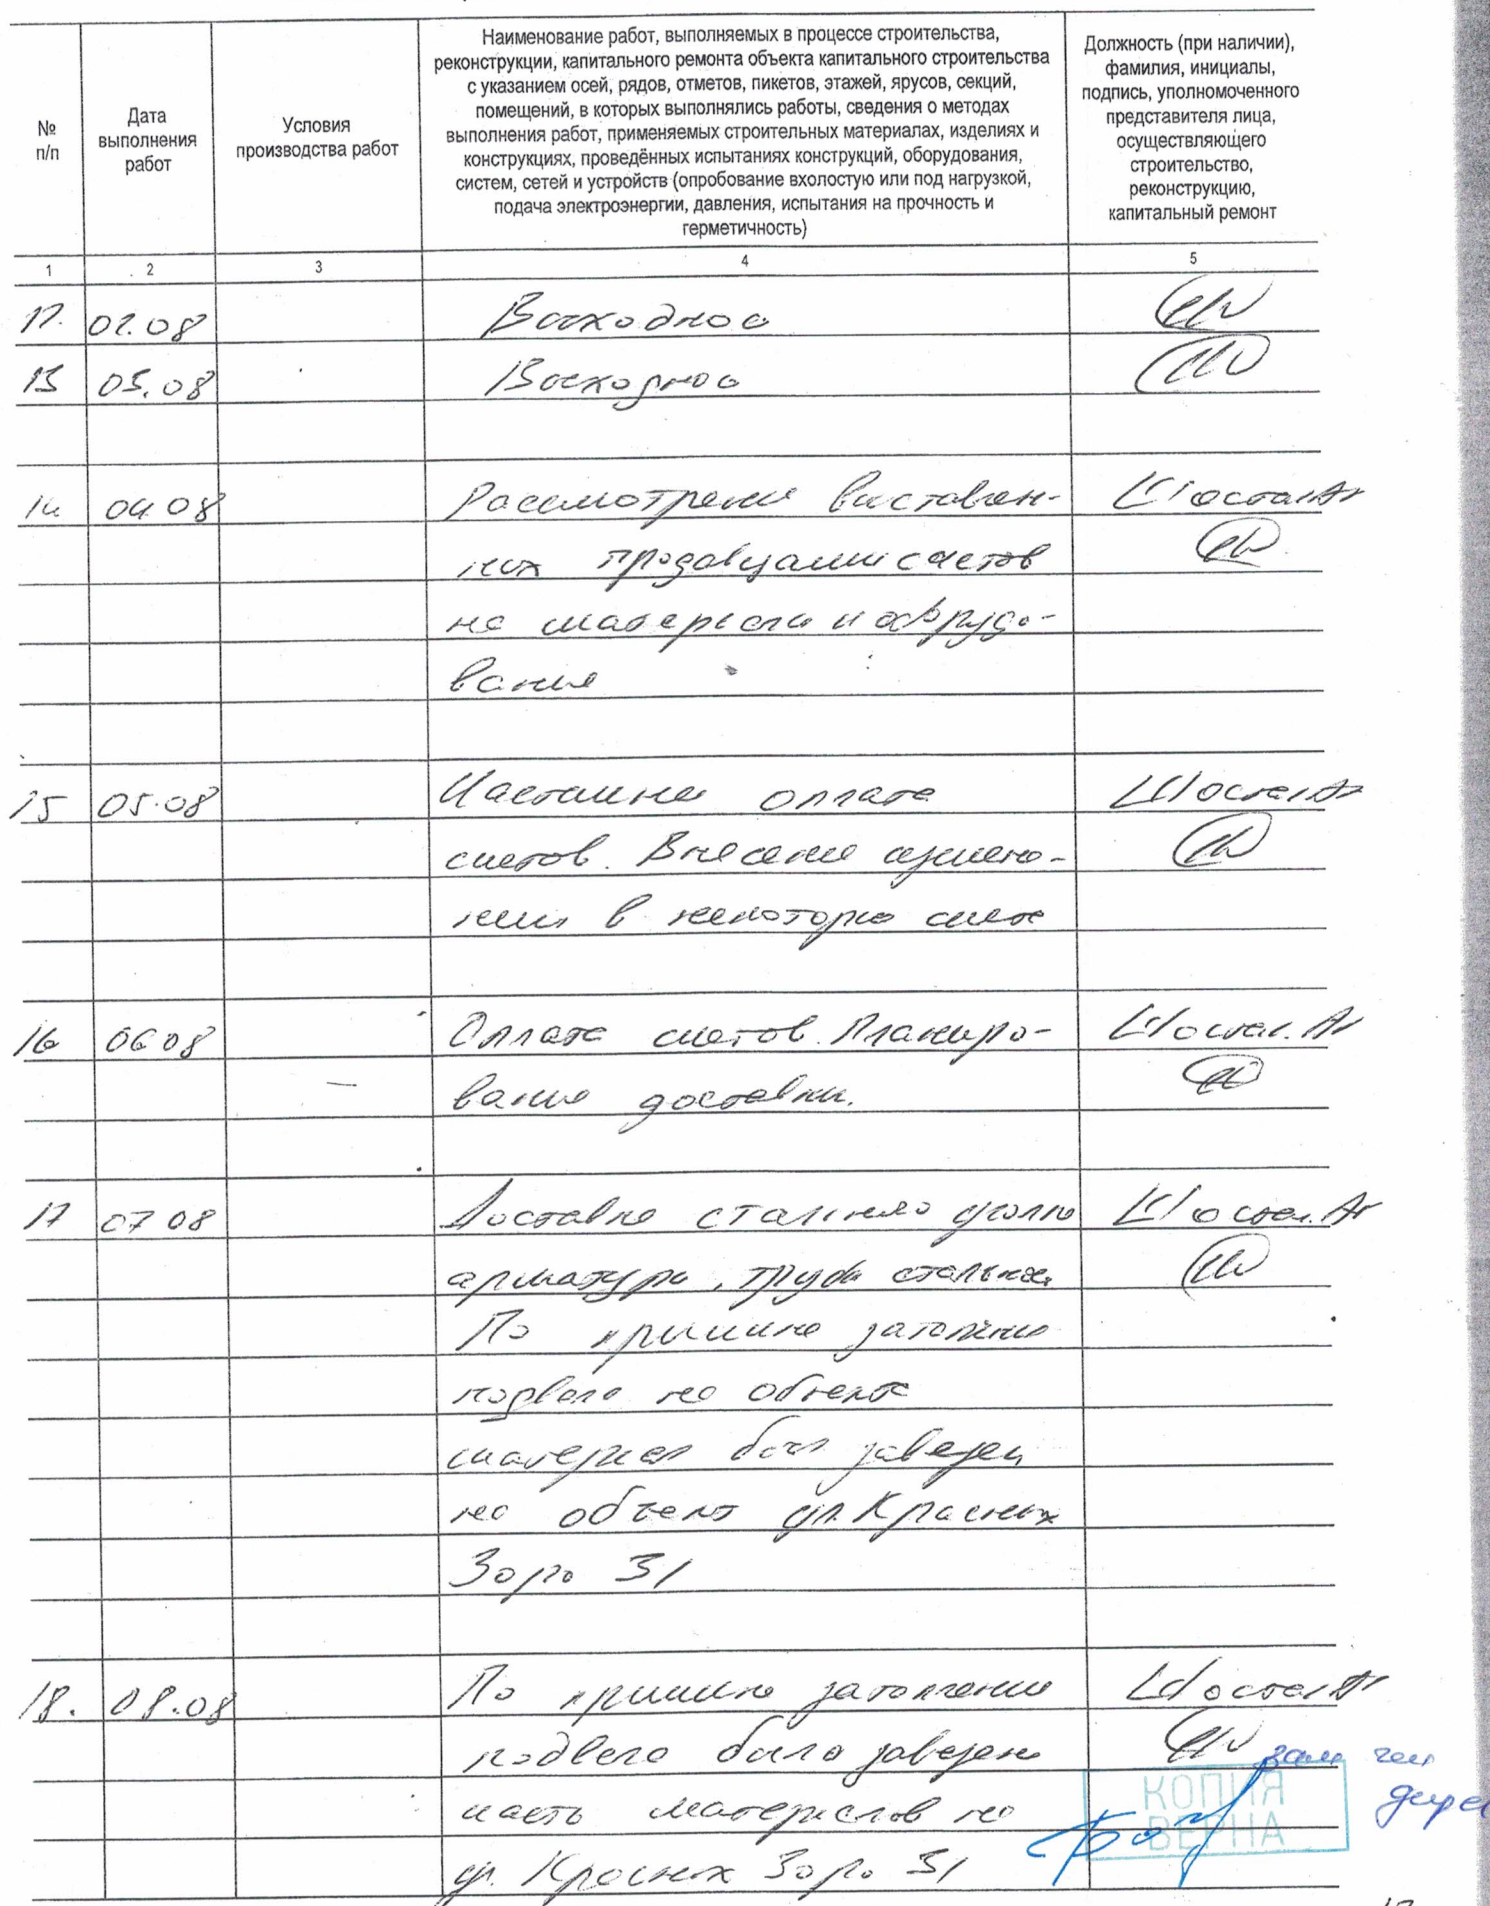 №
п/п
Дата
выполнения
работ
Условия
производства работ
Наименование работ, выполняемых в процессе строительства,
реконструкции, капитального ремонта объекта капитального строительства
с указанием осей, рядов, отметов, пикетов, этажей, ярусов, секций,
помещений, в которых выполнялись работы, сведения о методах
выполнения работ, применяемых строительных материалах, изделиях и
конструкциях, проведённых испытаниях конструкций, оборудования,
систем, сетей и устройств (опробование вхолостую или под нагрузкой,
подача электроэнергии, давления, испытания на прочность и
герметичность)
Должность (при наличии),
фамилия, инициалы,
подпись, уполномоченного
представителя лица,
осуществляющего
строительство,
реконструкцию,
капитальный ремонт
1 2 3 4 5
12. 02.08
13 03.08
14 04 08 Рассмотрение выставлен-
ных продавцами счетов
на материалы и оборудо-
вание
15 05.08 Частичная оплата
счетов. Внесение измене-
ний в некоторые счета
16 06 08 Оплата счетов. Планиро-
вание доставки.
17 07 08 Доставка стального уголка
арматура, труба стальная
По причине затопления
подвала на объекте
материал был завезен
на объект ул. Красных
Зорь 31
18. 08.08 По причине затопления
подвала было завезено
часть материалов на
ул. Красных Зорь 31
зам ген
КОПИЯ
ВЕРНА